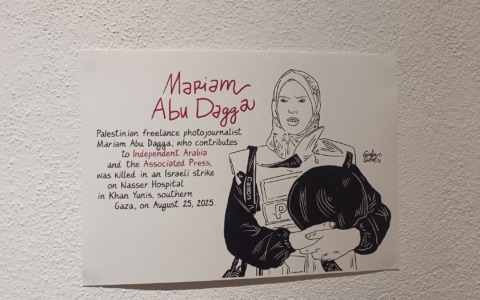 Mariam
Abu Dagga
Palestinian freelance photojournalist
Mariam Abu Dagga, who contributes
to Independent Arabia
and the Associated Press,
was killed in an Israeli strike
on Nasser Hospital
in Khan Yunis, southern
Gaza, on August 25, 2025.
Canon
P